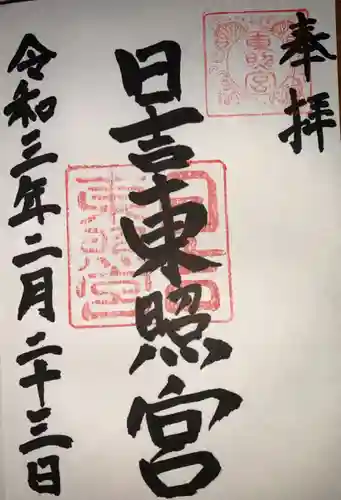 奉拝
日吉東照宮
令和三年二月二十三日